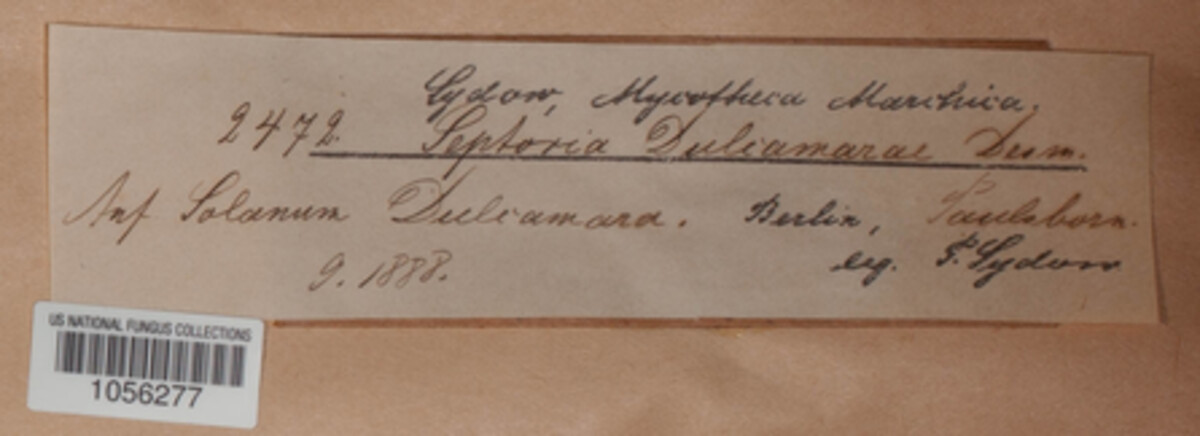 Sydow, Mycotheca Marchica.
2472. Septoria Dulcamarae Desm.
Auf Solanum Dulcamara. Berlin, Paulsborn.
9. 1888. leg. P. Sydow
US NATIONAL FUNGUS COLLECTIONS
1056277